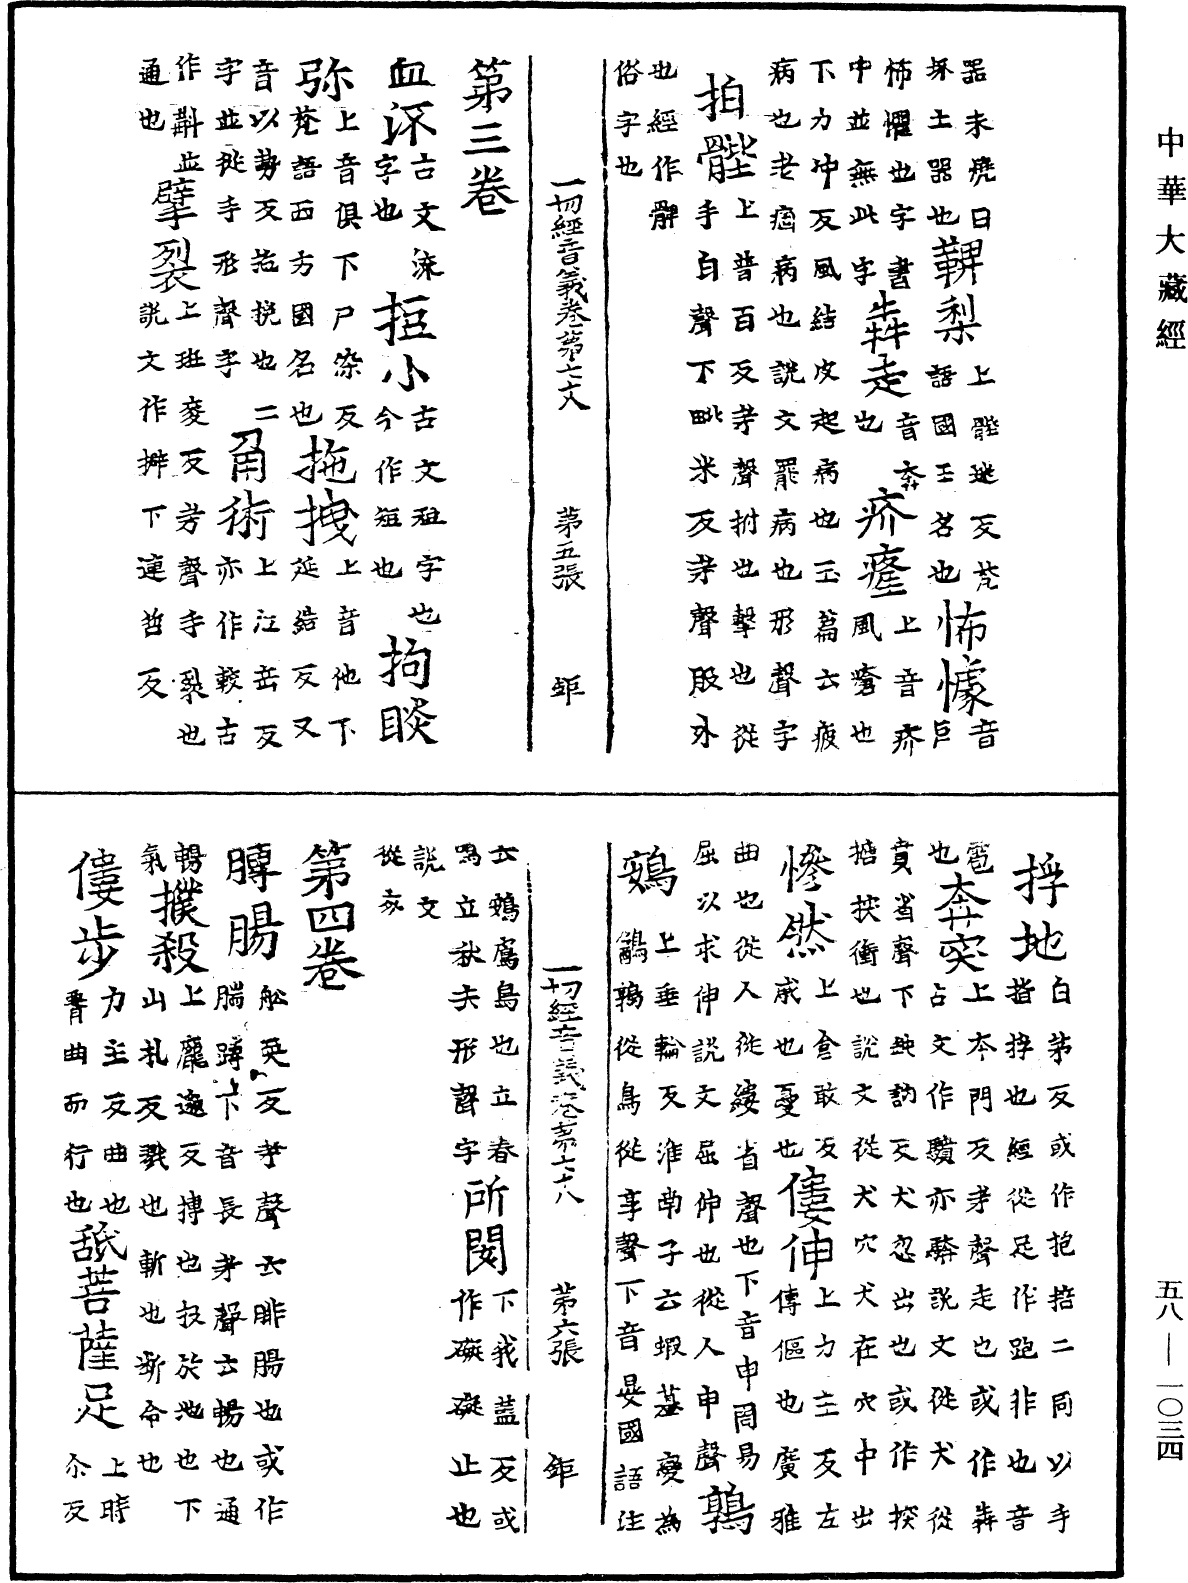 中華大藏經
器未燒曰
坏土器也 鞞梨 上髀迷反梵
語國王名也 怖懅 音
怖懼也字書 巨
中並無此字 犇走 音奔
也 疥癁 上音疥
風瘡也
下力冲反風結皮起病也玉篇云疲
病也老癃病也說文罷病也形聲字
拍髀 上普百反茅聲拊也擊也從
手白聲下毗米反茅聲股外
也經作髀
俗字也
一切經音義卷第七十八 第五張 鉅
第三卷
血㳅 古文流
字也 拒小 古文短字也
今作短也 拘睒
弥 上音俱下尸染反
梵語西方國名也 拖拽 上音他下
延結反又
音以勢反拕挽也二
字並從手形聲字 角術 上江岳反
亦作較古
作斠也 擘裂 上班麥反茅聲手裂也
說文作擗下連哲反
通也
捊地 白茅反或作抱掊二同以手
指捊也經從足作跑非也音
雹
也 奔突 上本門反茅聲走也或作犇
古文作驞亦驞說文從犬從
賁省聲下鈍訥反犬忽出也或作揬
搪揬衝也說文從犬穴犬在穴中出
慘然 上倉敢反
慼也憂也 僂伸 上力主反左
傳傴也廣雅
曲也從人從縷省聲也下音申周易
屈以求伸說文屈伸也從人申聲 鶉
鴳 上垂輪反淮南子云蝦蟇變為
鶉鶉從鳥從享聲下音晏國語注
云鴳鳸鳥也立春
鳴立秋去形聲字 所閡 下我蓋反或
作礙礙止也
說文
從亥
一切經音義卷第七十八 第六張 鉅
第四卷
膞腸 船耎反茅聲云腓腸也或作
腨蹲下音長茅聲云暢也通
暢
氣 撲殺 上龐邈反摶也投於地也下
山札反戮也斬也斷命也
僂步 力主反曲也
脊曲而行也 舐菩薩足 上時
尒反
五八—一〇三四